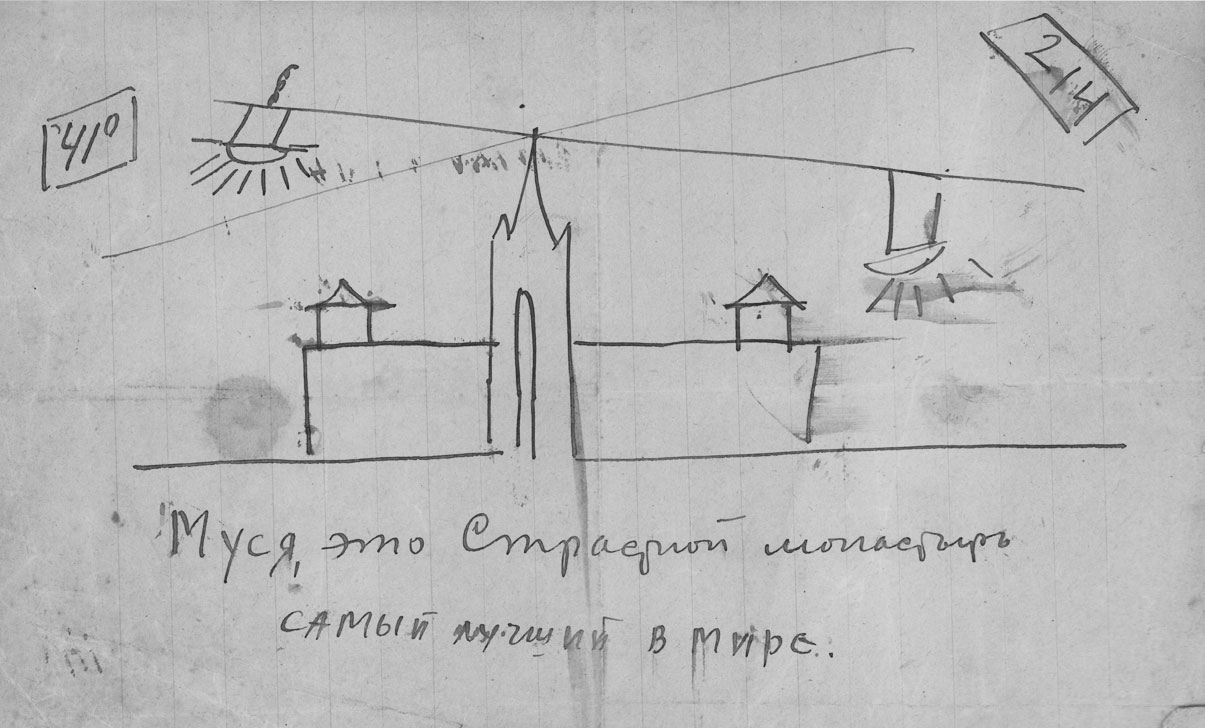 41°
214
Муся, это Страстной монастырь
САМЫЙ лучший в мире.